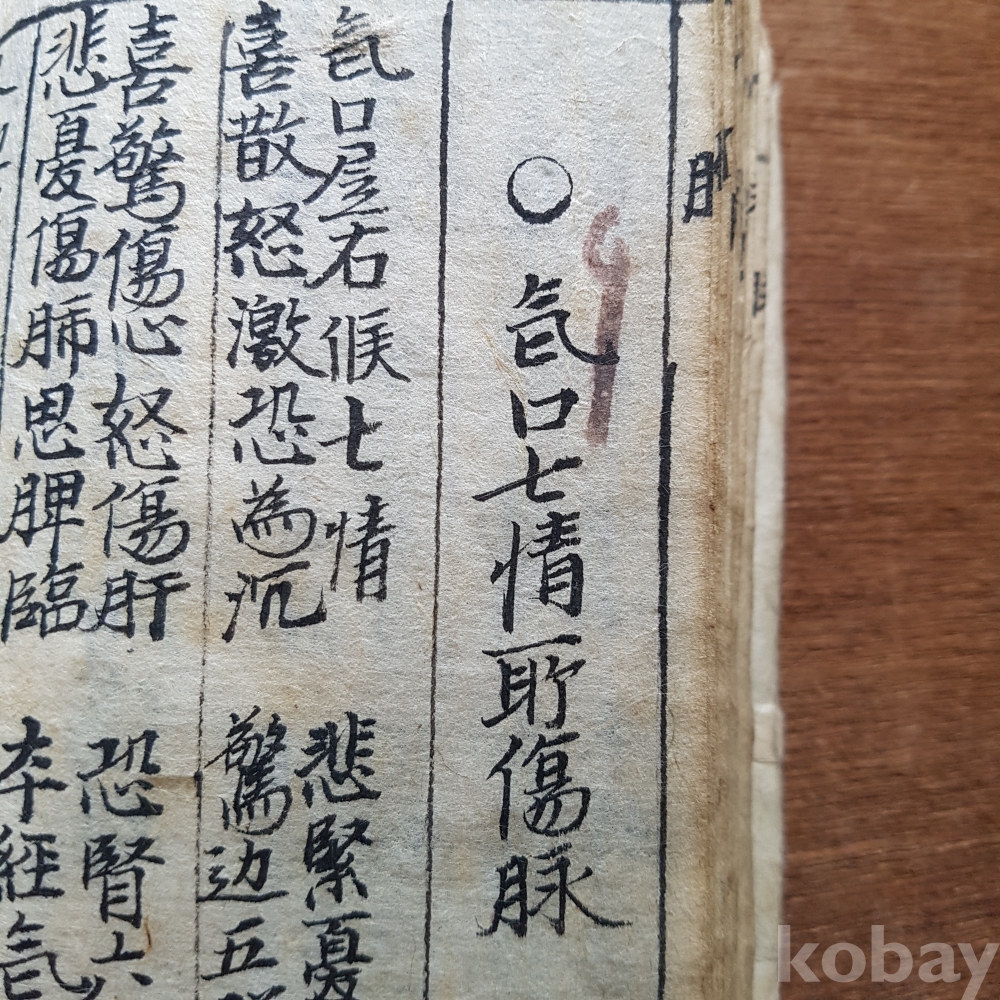 ○氣口七情所傷脉
氣口屋右候七情 悲緊憂
喜散怒激恐為沉 驚边五
喜驚傷心怒傷肝 恐腎六
悲憂傷肺思脾臨 本經氣
kobay